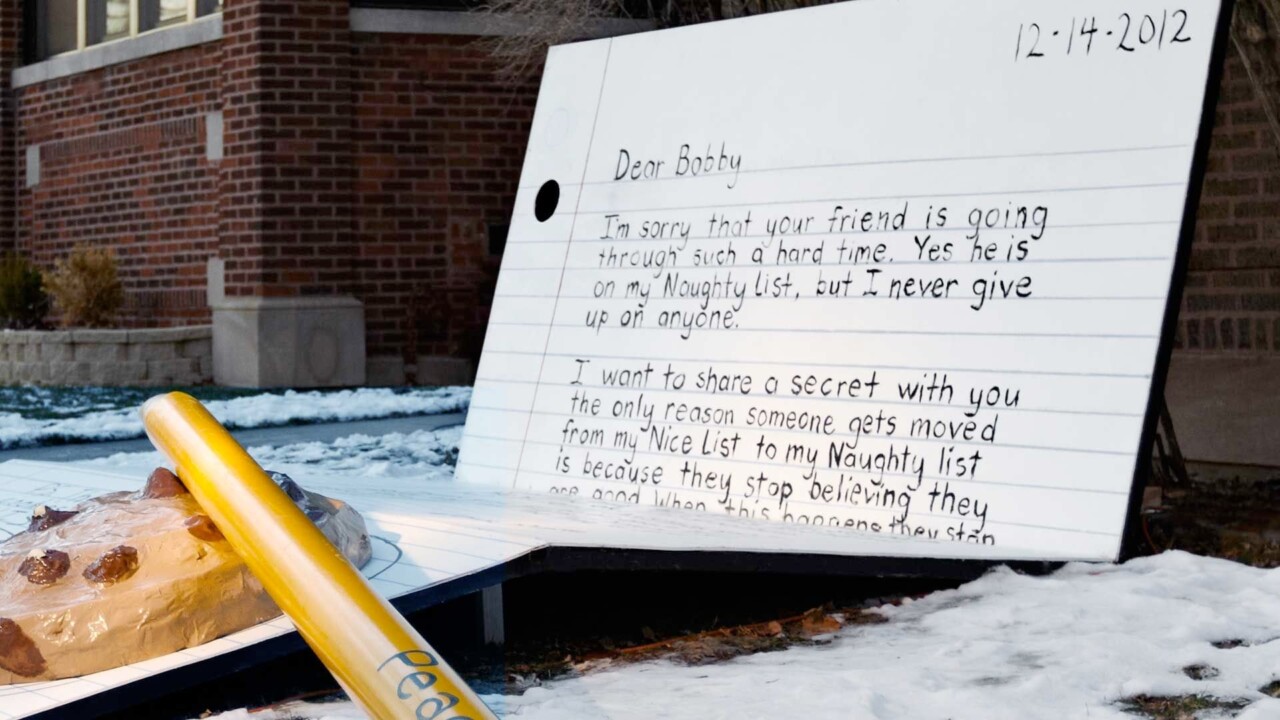 12·14·2012
Dear Bobby
I'm sorry that your friend is going
through such a hard time. Yes he is
on my Naughty list, but I never give
up on anyone.
I want to share a secret with you
the only reason someone gets moved
from my Nice List to my Naughty list
is because they stop believing they
are good when this happens they stop
Peac